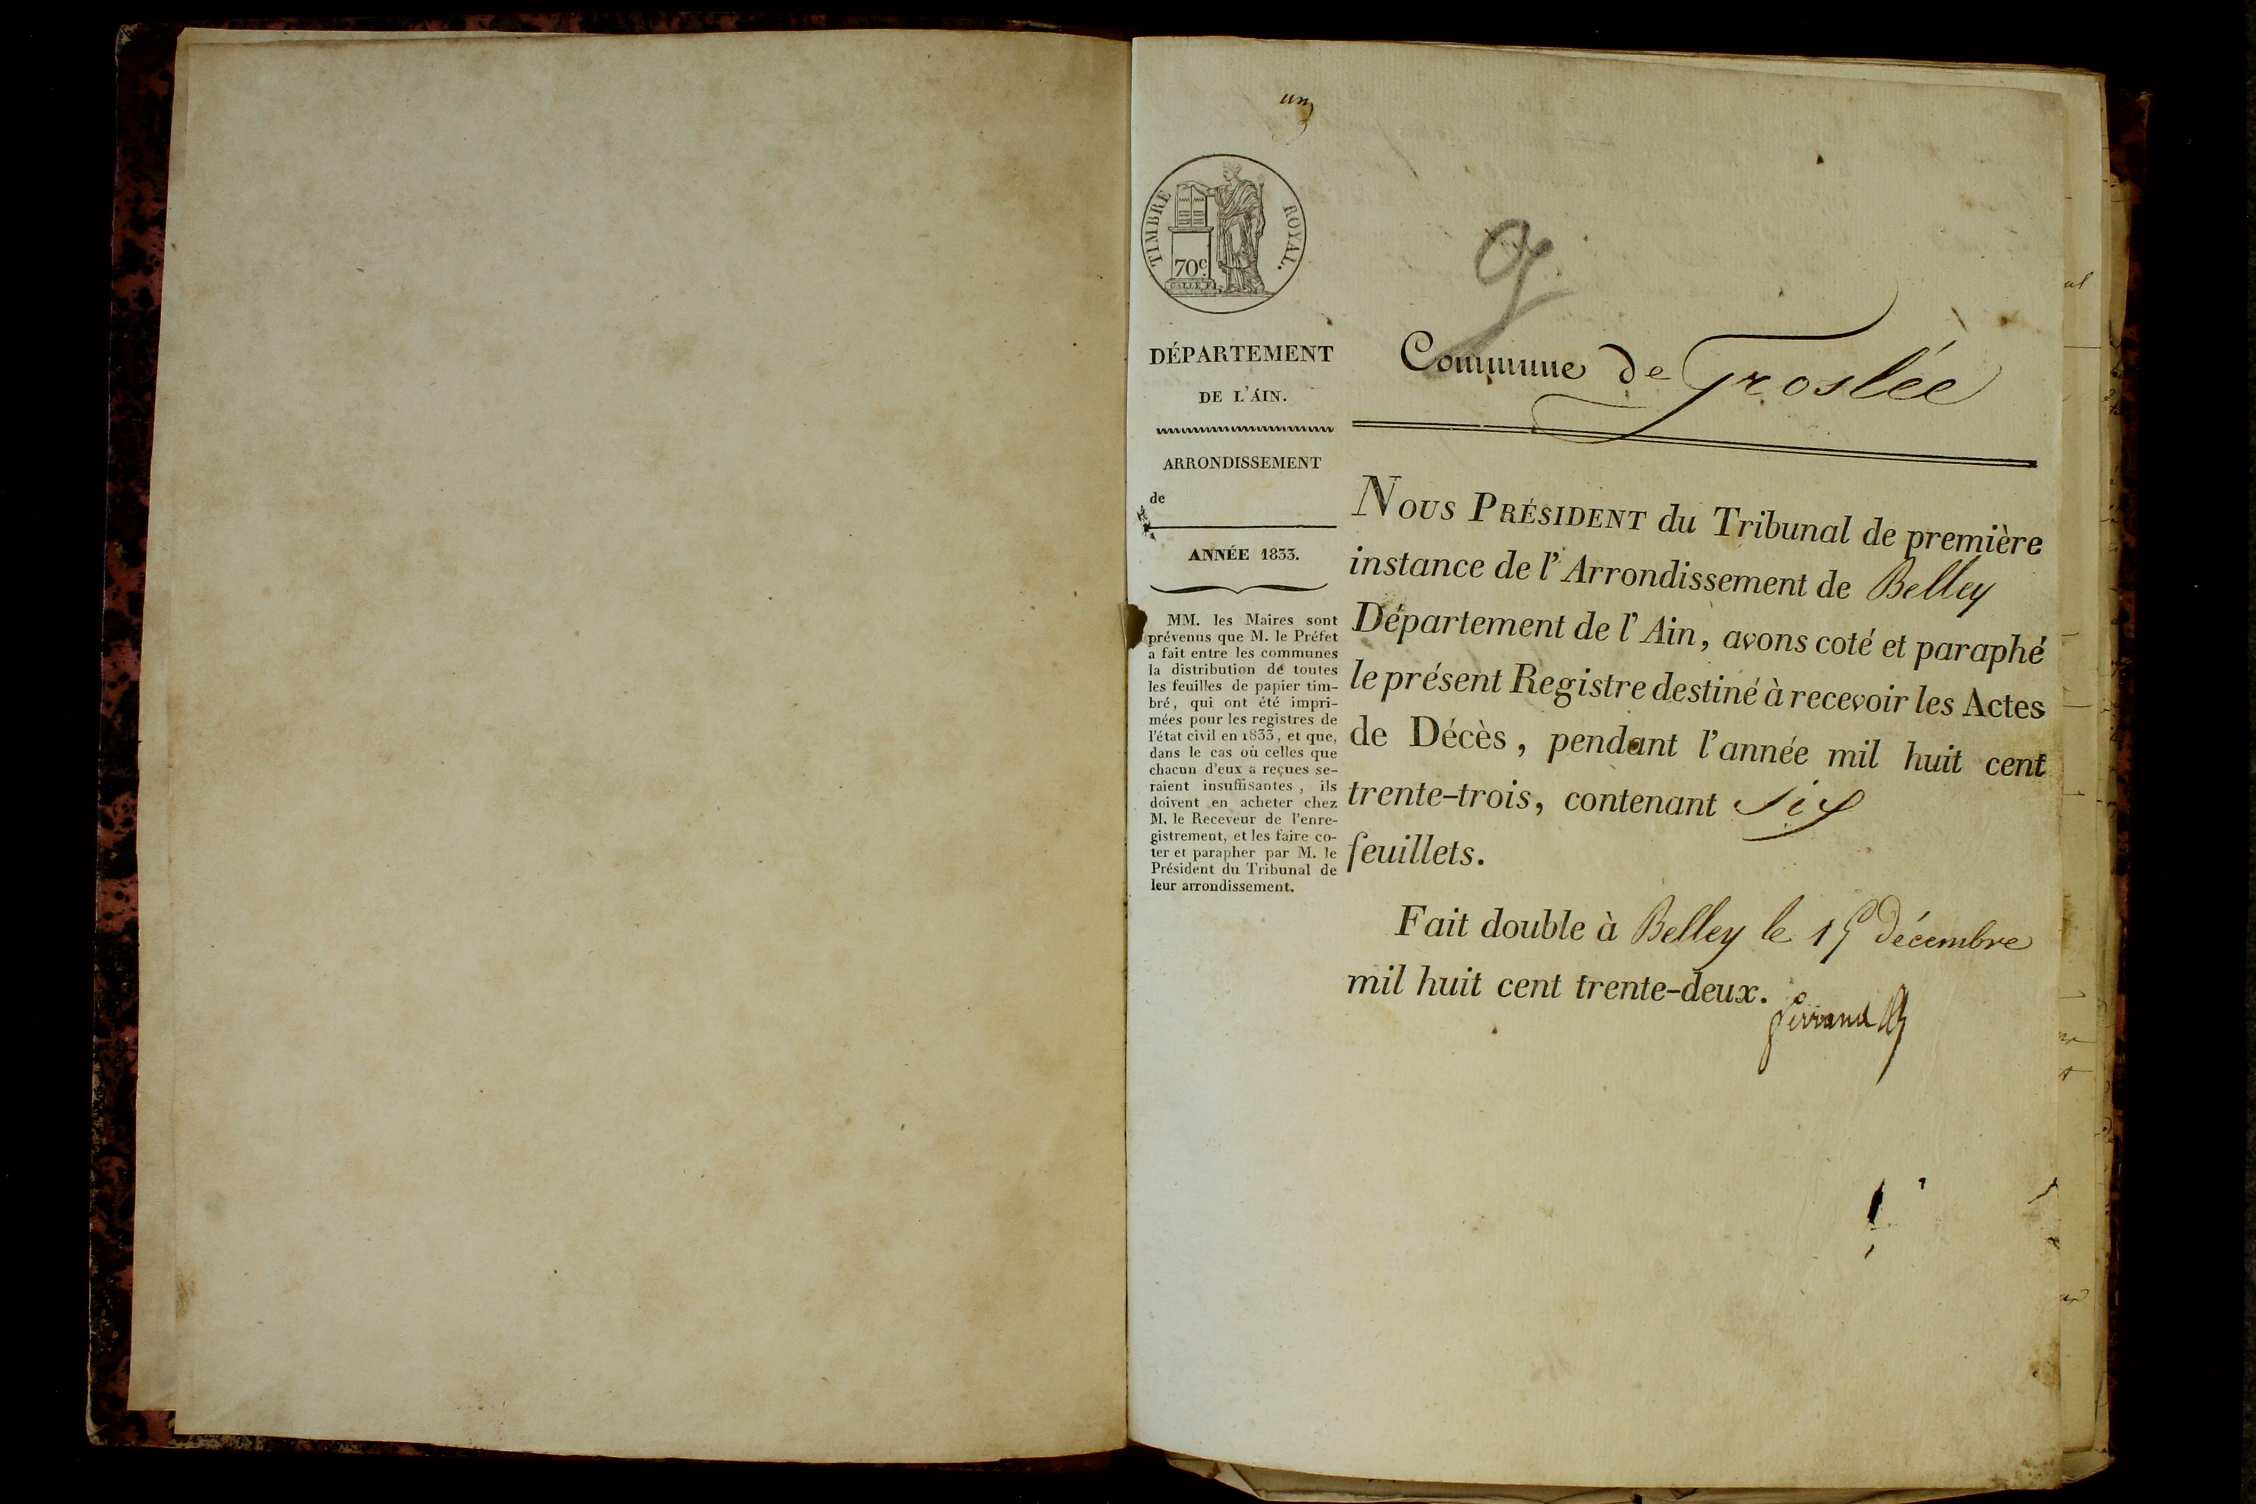 un
TIMBRE ROYAL.
70c
DÉPARTEMENT
DE L'AIN.
ARRONDISSEMENT
de
ANNÉE 1833.
MM. les Maires sont
prévenus que M. le Préfet
a fait entre les communes
la distribution de toutes
les feuilles de papier tim-
bré, qui ont été impri-
mées pour les registres de
l'état civil en 1833, et que,
dans le cas où celles que
chacun d'eux a reçues se-
raient insuffisantes, ils
doivent en acheter chez
M. le Receveur de l'enre-
gistrement, et les faire co-
ter et parapher par M. le
Président du Tribunal de
leur arrondissement.
g
Commune de Groslée
NOUS PRÉSIDENT du Tribunal de première
instance de l'Arrondissement de Belley
Département de l'Ain, avons coté et paraphé
le présent Registre destiné à recevoir les Actes
de Décès, pendant l'année mil huit cent
trente-trois, contenant six
feuillets.
Fait double à Belley le 15 décembre
mil huit cent trente-deux.